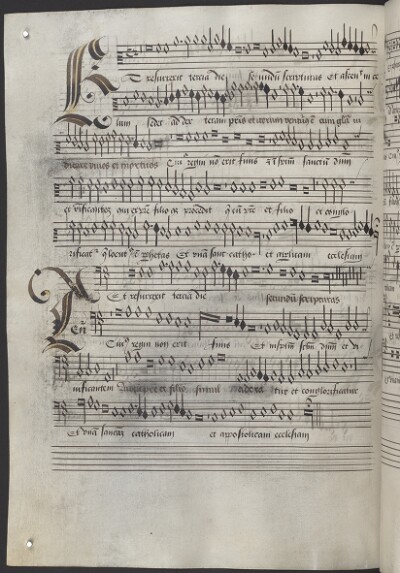 Et resurrexit tercia die secundum scripturas Et ascendit in ce
lum sedet ad dex teram pris et iterum venturus est cum gła in
dicare vivos et mortuos Cuius regni non erit finis in spm sanctum dnm
et vivificantem qui ex pre filio qz procedit qui cum pre et filio et conglo
rificatur qui locutus est prophetas Et unam sanctam catho et aplicam ecclesiam
Et resurrexit tercia die secundum scripturas
Cuius regni non erit finis Et in spm scm dnm et vi
vificantem filio simul adora tur et conglorificatur
Et unam sanctam catholicam et apostolicam ecclesiam